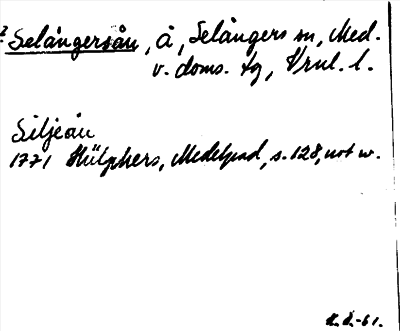 Selångersån, å, Selångers sn, Med.
v. doms. tg, Vrnl. l.
Siljeån
1771 Hülphers, Medelpad, s. 128, not w.